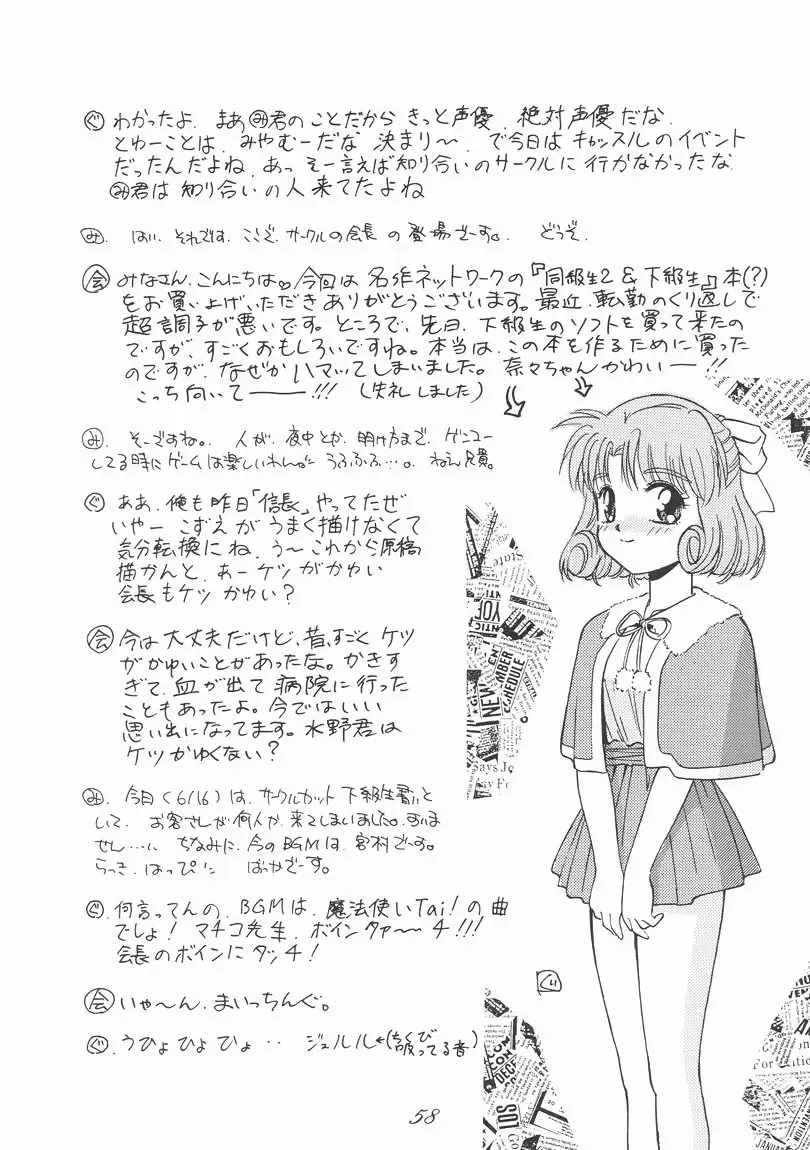 ぐ わかったよ、まあみ君のことだからきっと声優、絶対声優だな
とゆーことは、みやむーだな 決まり〜、で今日はキャッスルのイベント
だったんだよね、あっ そー言えば知り合いのサークルに行かなかったな
み君は知り合いの人来てたよね
み、はい、それです、ここで、サークルの会長の登場でーす。 どうぞ、
会 みなさん、こんにちは。今回は名作ネットワークの『同級生2&下級生』本(?)
をお買い上げいただきありがとうございます。最近、転勤のくり返しで
超調子が悪いです。ところで、先日、下級生のソフトを買って来たの
ですが、すごくおもしろいですね。本当は、この本を作るために買った
のですが、なぜかハマッてしまいました。奈々ちゃんかわいー!!
こっち向いてー!!! (失礼しました)
み、そーですね。人が、夜中とか、明け方まで、ゲンコー
してる時にゲームは楽しい うふふふ…。ねえ兄貴。
ぐ ああ、俺も昨日「信長」やってたぜ
いやー こずえがうまく描けなくて
気分転換にね、う〜これから原稿
描かんと、あーケツがかゆい
会長もケツかゆい?
会 今は大丈夫だけど、昔、すごくケツ
がかゆいことがあったな。かきす
ぎて、血が出て病院に行った
こともあったよ。今ではいい
思い出になってます。水野君は
ケツかゆくない?
み、今日(6/16)は、サークルカット下級生書いと
いて、お客さんが何人か、来てしまいました。すいま
せん…、ちなみに、今のBGMは、宮村でーす。
らっき、はっぴに ばっかでーす。
ぐ、何言ってんの、BGMは、魔法使いTai!の曲
でしょ! マチコ先生、ボインタァ〜〜チ!!!
会長のボインにタッチ!
会 いや〜ん、まいっちんぐ。
ぐ、うひょひょひょ‥ ジュルル←(ちくび吸ってる音)
58